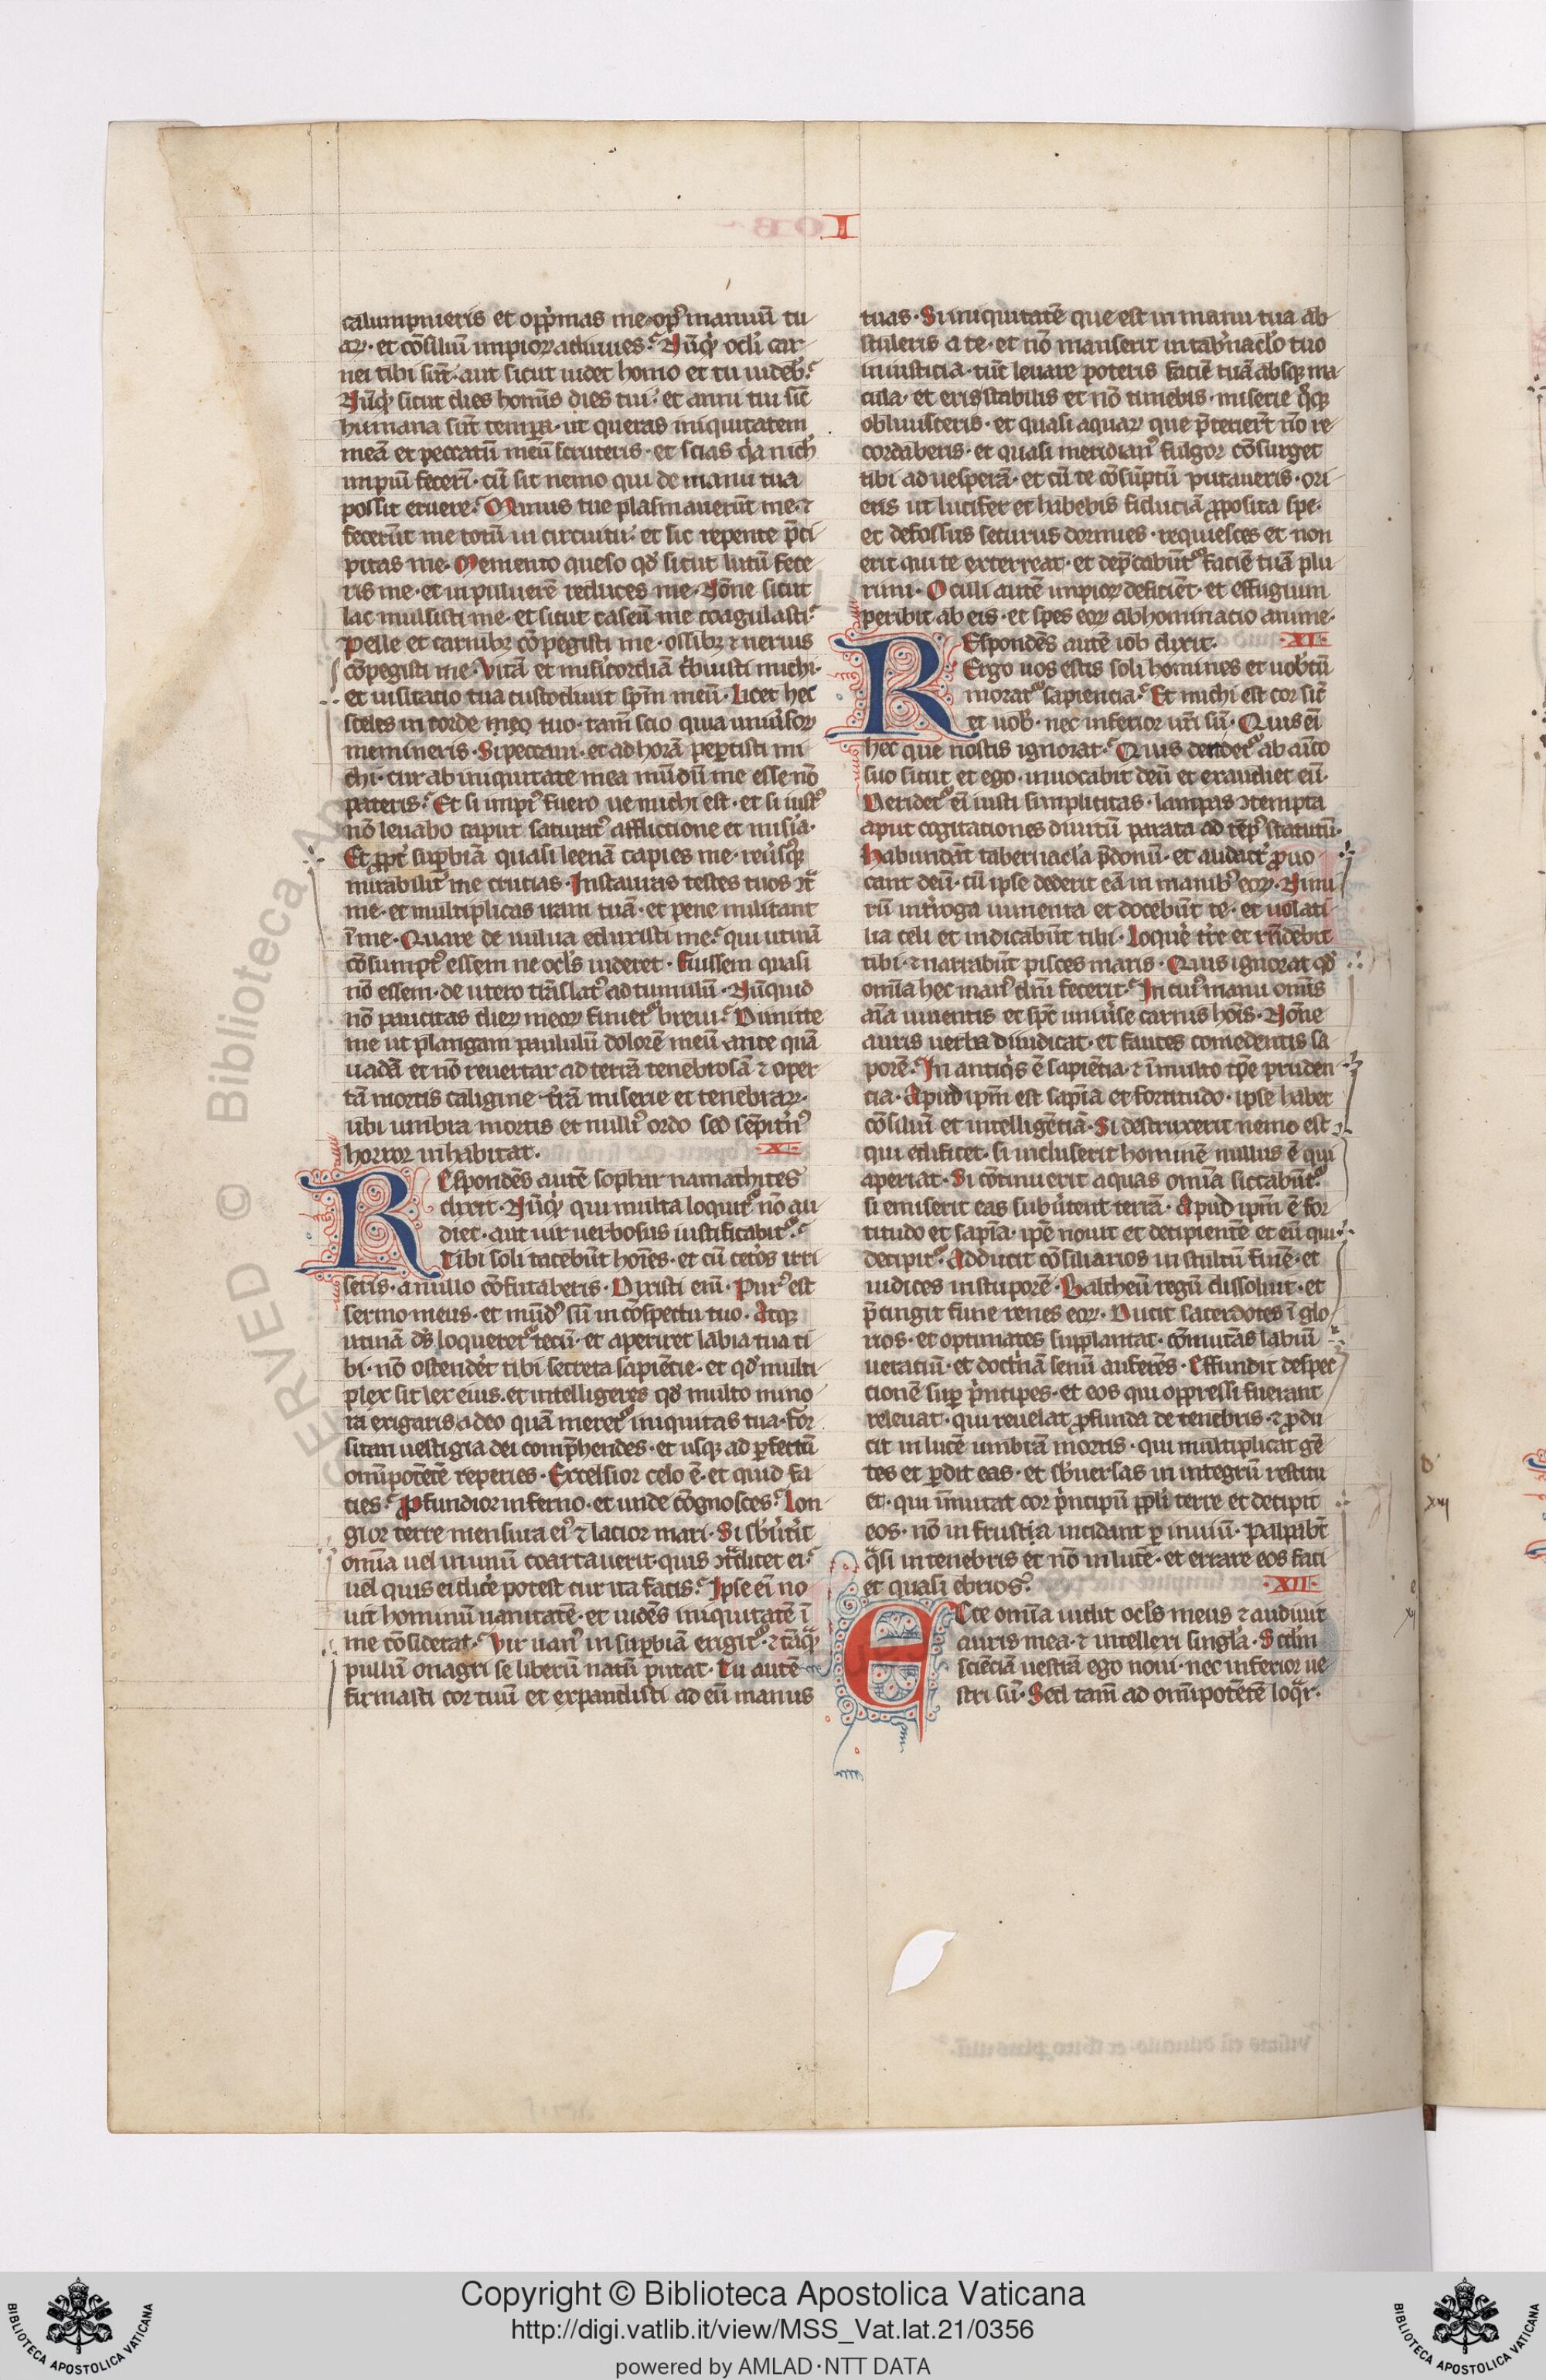 I
calumpnieris et opp̍mas me· opꝰ manuū tu
aꝝ· et cōsiliū impioꝝ adiuues? Nūq̍d ocl̍i car
nei tibi sūt· aut sicut uidet homo et tu uideb̍?
Nūq̍d sicut dies homīs dies tui· et anni tui sic̄
humana sūt tempora· ut queras iniquitatem
meā et peccatū meū scruteris· et scias q̍a nich̍
impiū fecerī· cū sit nemo qui de manu tua
possit eruere? Manus tue plasmauerūt me· ⁊
fecerūt me totū in circuitu· et sic repente p̄ci
pitas me· Memento queso qd̍ sicut lutū fece
ris me· et in puluerē reduces me· Nōne sicut
lac mulsisti me· et sicut caseū me coagulasti?
Pelle et carnibꝫ cōpegisti me· ossibꝫ ⁊ neruis
cōpegisti me· Vitā et mīsicordiā t̍buisti michi·
et uisitatio tua custodiuit spīm meū· Licet hec
sceles in corde meo tuo· tam̄ scio quia uniu̍soꝝ
memineris· Si peccaui· et ad horā peꝑcisti mi
chi· cur ab iniquitate mea mūdū me esse nō
pateris? Et si impiꝰ fuero ue michi est· et si iustꝰ
nō leuabo caput saturatꝰ afflictione et mis̍ia·
Et ꝓpt̍ suꝑbiā quasi leenā capies me· reu̍sꝰqꝫ
mirabilit̍ me crucias· Instauras testes tuos ↄt̍
me· et multiplicas iram tuā· et pene militant
ī me· Quare de uulua eduxisti me? qui utinā
cōsumptꝰ essem ne ocl̍s uideret· Fuissem quasi
nō essem· de utero trāslatꝰ ad tumulū· Nūquid
nō paucitas dieꝝ meoꝝ finiet᷑ breui? Dimitte
me ut plangam paululū dolorē meū ante quā
uadā et nō reuertar ad terrā tenebrosā ⁊ oper
tā mortis caligine· t̍rā miserie et tenebraꝝ·
ubi umbra mortis et nullꝰ ordo sed sēpit̍nꝰ
horror inhabitat· ·X·
REspondēs autē sophar namathites
dixit· Nūq̍d qui multa loquit᷑ nō au
diet· aut uir uerbosus iustificabit᷑?
Tibi soli tacebūt hoīes· et cū cet̍os irri
seris· a nullo cōfutaberis· Dixisti enī· Purꝰ est
sermo meus· et mūdꝰ sū in cōspectu tuo· Atqꝫ
utinā ds̄ loqueret᷑ tecū· et aperiret labia tua ti
bi· nō ostender̍t tibi secreta sapiētie· et qd̍ multi
plex sit lex eius· et intelligeres qd̍ multo mino
ra exigaris a deo quā meret᷑ iniquitas tua· For
sitan uestigia dei comp̄hendes· et usqꝫ ad ꝑfectū
omīpotētē reperies· Excelsior celo ē· et quid fa
cies? Ꝓfundior inferno· et unde cōgnosces? Lon
gior terre mensura eiꝰ ⁊ latior mari· Si sb̍u̍tit̍
omīa uel in unū coartauerit· quis ↄt̍dicet ei?
uel quis ei dic̍e potest cur ita facis? Ipse ei̅ no
uit hominū uanitatē· et uidēs iniquitatē ī
me cōsiderat? Vir uanꝰ in suꝑbiā erigit᷑· ⁊ tāq̍
pullū onagri se liberū natū putat· Tu autē
firmasti cor tuū et expandisti ad eū manus
tuas· Si iniquitatē que est in manu tua ab
stuleris a te· et nō manserit in tab̍naclo̍ tuo
iniusticia· tūc leuare poteris faciē tuā absqꝫ ma
cula· et eris stabilis et nō timebis· miserie q̍qꝫ
obliuisceris· et quasi aquaꝝ que p̄terier̄t nō re
cordaberis· et quasi meridianꝰ fulgor cōsurget
tibi ad uesperā· et cū te cōsūptū putaueris· ori
eris ut lucifer et habebis fiduciā ꝓposita spe·
et defossus securus dormies· requiesces et non
erit qui te exterreat· et dep̄cabūt᷑ faciē tuā plu
rimi· Oculi autē impioꝝ deficiēt· et effugium
peribit ab eis· et spes eoꝝ abhominacio anime·
REspondēs autē iob dixit· ·XI·
Ergo uos estis soli homines et uob̍cū
morat᷑ sapiencia? Et michi est cor sic̄
et uob̍· nec inferior ur̄i sū· Quis ei̅
hec que nostis ignorat? Qui deridet᷑ ab ami̅co
suo sicut et ego· inuocabit deū et exaudiet eū·
Deridet᷑ ei̅ iusti simplicitas· lampas ↄtempta
aput cogitationes diuitū parata ad tēpꝰ statutū·
Habundāt tabernacl̍a p̄donū· et audact̍ ꝓuo
cant deū· cū ipse dederit eā in manibꝰ eoꝝ· Nimi
rū int̍roga iumenta et docebūt te· et uolati
lia celi et indicabūt tibi· Loquer̍ t̍re et rn̄debit
tibi· ⁊ narrabūt pisces maris· Quis ignorat qd̍
omīa hec manꝰ dn̄i fecerit? In cuiꝰ manu omīs
aīa uiuentis et spc̄ uniu̍se carnis hoīs· Nōne
auris uerba diiudicat· et fauces comedentis sa
porē? In antiq̍s ē sapiētia· ⁊ ī multo tp̄e pruden
tia· Apud ipm̄ est sapīa et fortitudo· ipse habet
cōsiliū et intelligētiā· Si destruxerit nemo est
qui edificet· si incluserit hominē nullus ē qui
aperiat· Si cōtinuerit aquas omīa siccabūt᷑·
si emiserit eas subu̍tent terrā· Apud ipm̄ ē for
titudo et sapīa· ipē nouit et decipientē et eū qui
decipit᷑· Adducit cōsiliarios in stultū finē· et
iudices in stuporē· Baltheū regū dissoluit· et
p̄cingit fune renes eoꝝ· Ducit sacerdotes ī glo
rios· et optimates supplantat· cōmutās labiū
ueraciū· et doct̍nā senū auferēs· Effundit despec
tionē suꝑ p̍ncipes· et eos qui oppressi fuerant
releuat· qui reuelat ꝓfunda de tenebris· ⁊ ꝓdu
cit in lucē umbrā mortis· qui multiplicat gē
tes et ꝑdit eas· et sb̍uersas in integrū restitu
et· qui īmutat cor p̍ncipū pp̄li terre et decipit
eos· nō in frustra incidant ꝑ inuiū· Palpabūt
q̍si in tenebris et nō in luce· et errare eos faci
et quasi ebrios? ·XII·
ECce omīa uidit ocl̍s meus ⁊ audiuit
auris mea· ⁊ intellexi singl̍a· Scd̄m
sciēciā uestrā ego noui· nec inferior ue
stri sū· Sed tam̄ ad omīpotētē loq̍r·
Copyright © Biblioteca Apostolica Vaticana
http://digi.vatlib.it/view/MSS_Vat.lat.21/0356
powered by AMLAD·NTT DATA
BIBLIOTECA APOSTOLICA VATICANA
BIBLIOTECA APOSTOLICA VATICANA